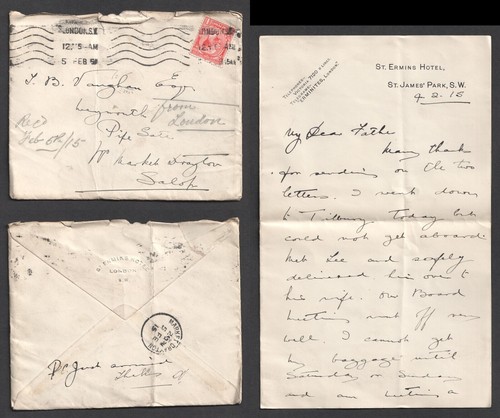 LONDON, S.W.
12.15 AM
5 FEB 15
T. B. Vaughan Esq.
from
London
Pipe Gate
Nr Market Drayton
Salop
Rec'd
Feb 5th/15
ST. ERMINS HOTEL,
ST. JAMES' PARK, S.W.
4.2.15
My Dear Father
Many thanks
for sending on the two
letters. I went down
to Tilbury today but
could not get aboard.
Met Lee and safely
delivered his over to
his wife. Our Board
meeting went off very
well. I cannot get
my baggage until
Saturday or Sunday
and am
MARKET DRAYTON
5 FE
15
P.C. Just